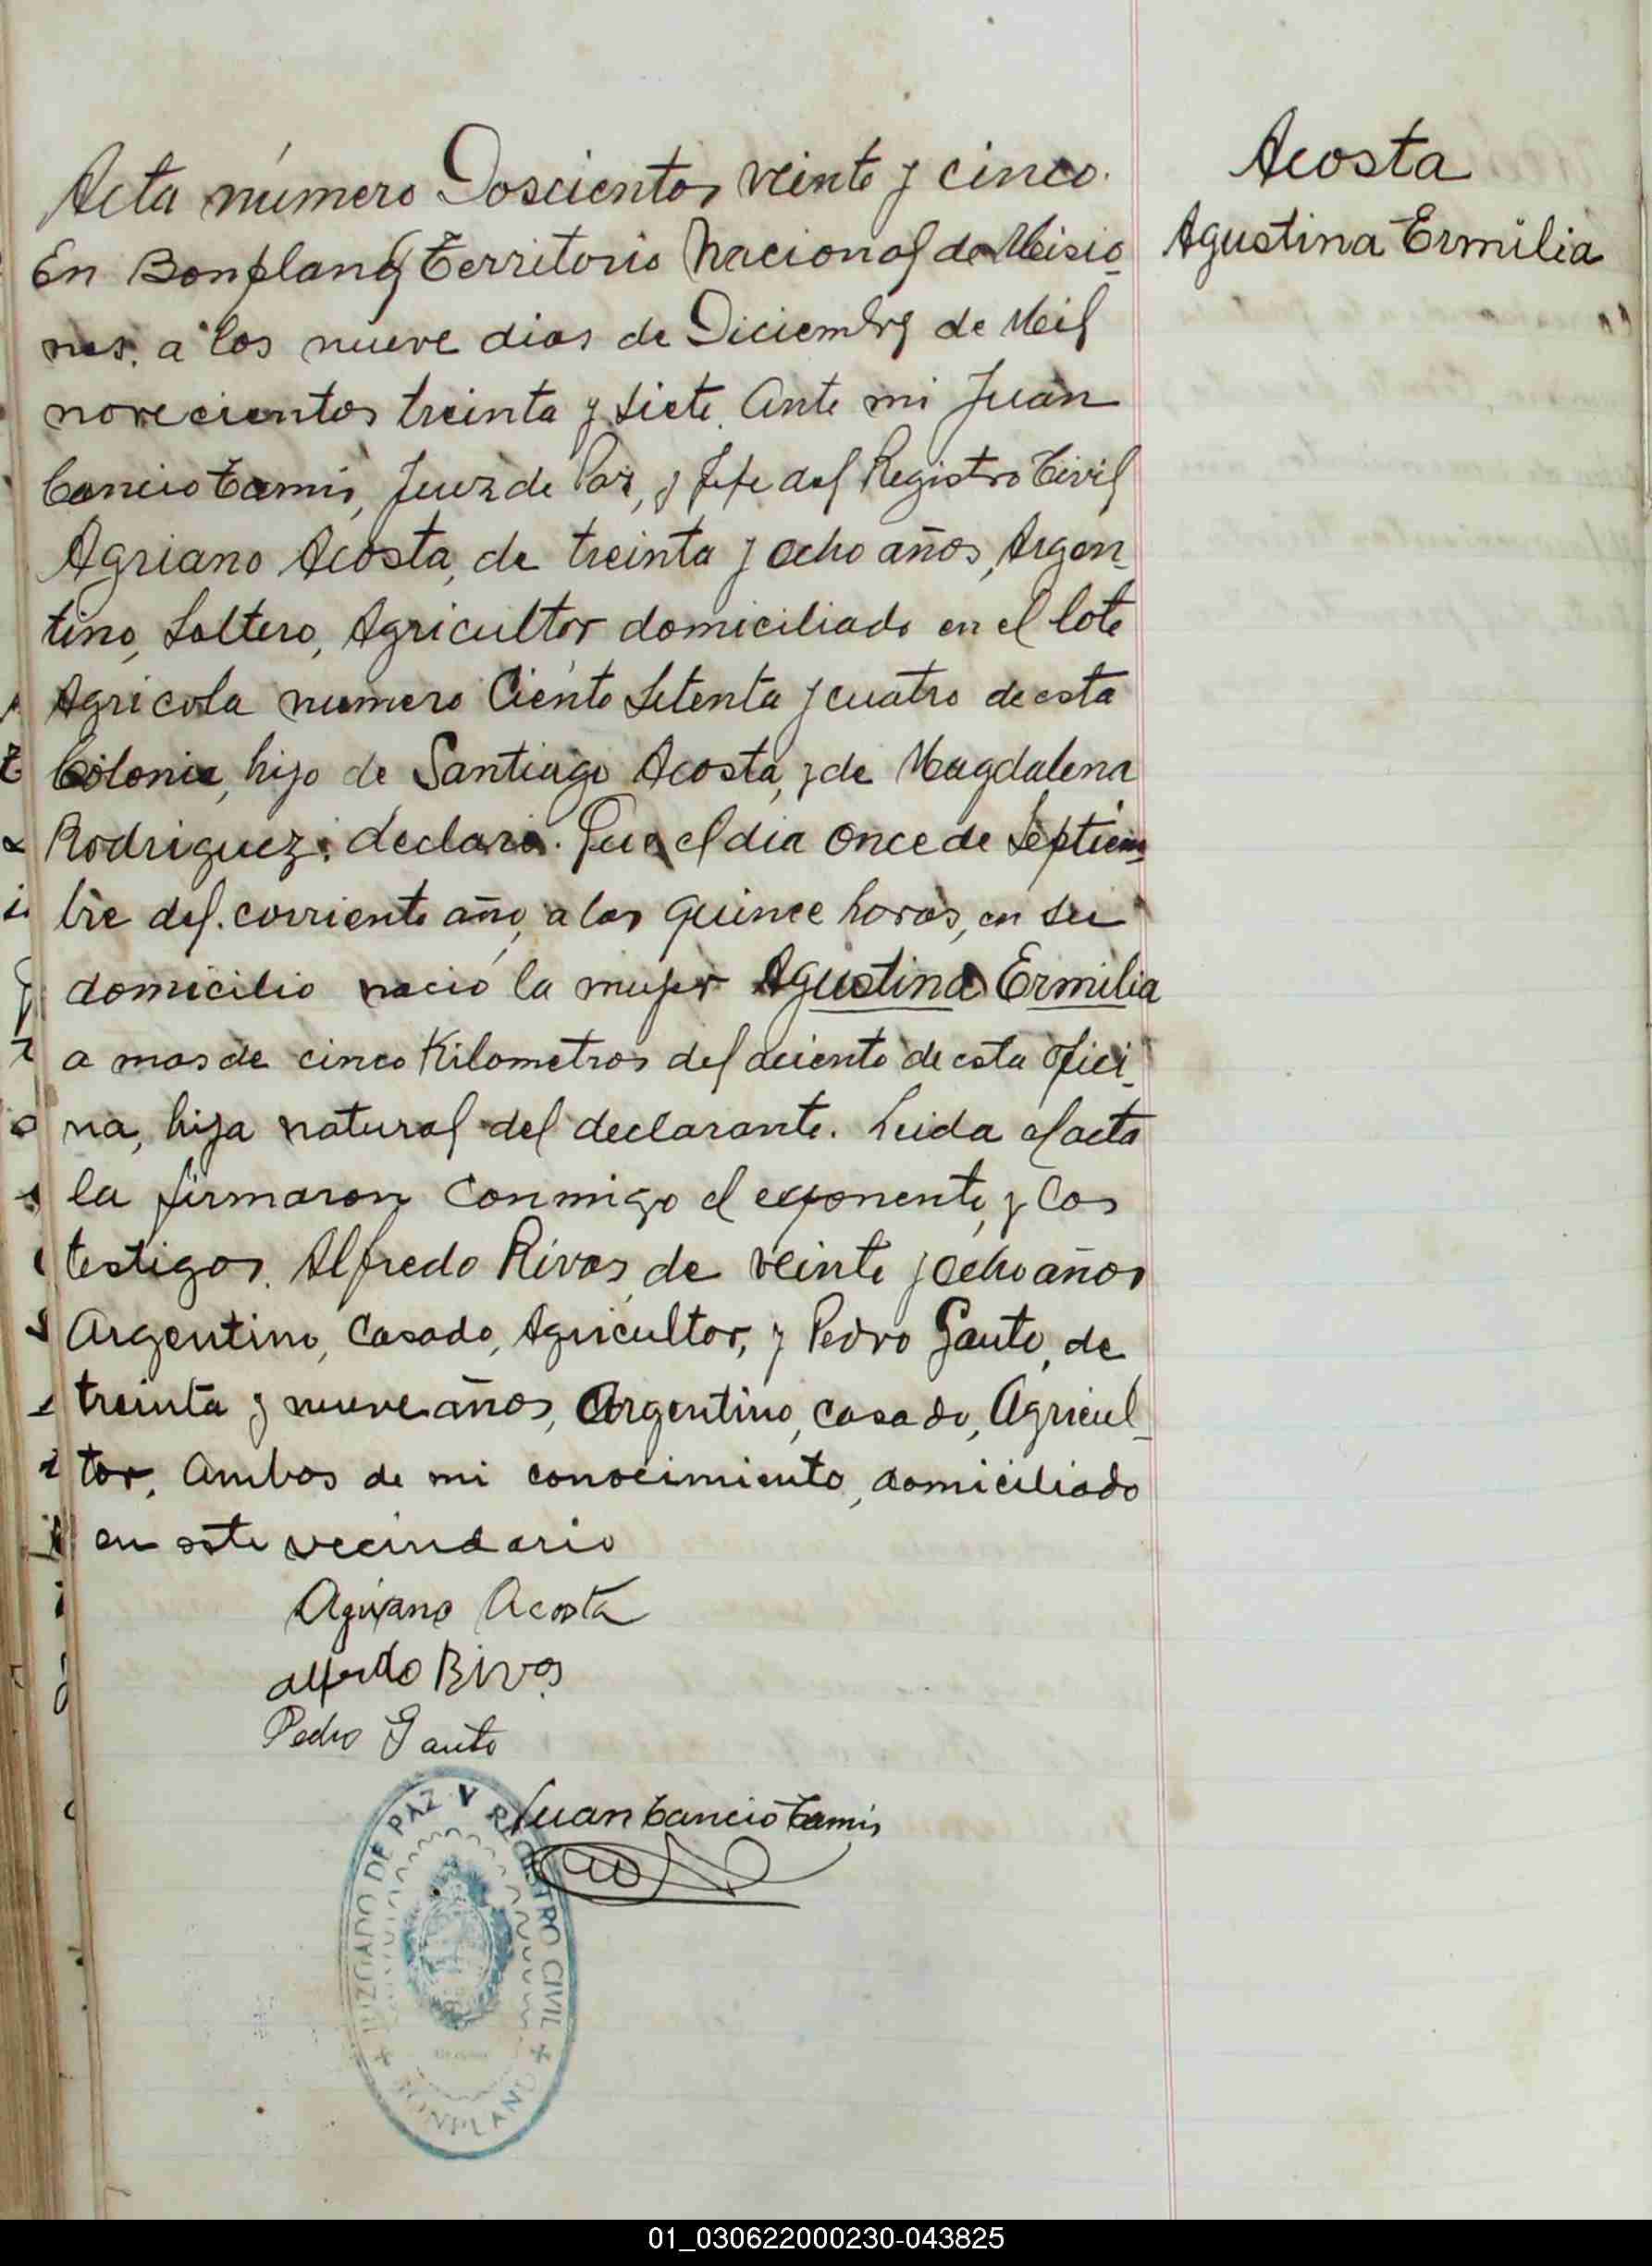 Acosta
Agustina Ermilia
Acta número Doscientos veinte y cinco.
En Bonpland Territorio Nacional de Misio-
nes. a los nueve dias de Diciembre de Mil
novecientos treinta y siete. Ante mi Juan
Cancio Tamis, Juez de Paz, y Jefe del Registro Civil
Agriano Acosta, de treinta y ocho años, Argen-
tino, Soltero, Agricultor domiciliado en el lote
Agricola numero Ciento Setenta y cuatro de esta
Colonia, hijo de Santiago Acosta, y de Magdalena
Rodriguez: declaro. Que el dia Once de Septiem-
bre del. corriente año, a las quince horas, en su
domicilio nació la mujer Agustina Ermilia
a mas de cinco Kilometros del aciento de esta Ofici-
na, hija natural del declarante. Leida el acta
la firmaron conmigo el exponente, y los
testigos. Alfredo Rivas, de veinte y ocho años
Argentino, Casado, Agricultor, y Pedro Gauto, de
treinta y nueve años, Argentino, casado, Agricul-
tor, Ambos de mi conocimiento, domiciliado
en este vecindario
Agriano Acosta
Alfredo Rivas
Pedro Gauto
Juan Cancio Tamis
JUZGADO DE PAZ Y REGISTRO CIVIL
BONPLAND
01_030622000230-043825